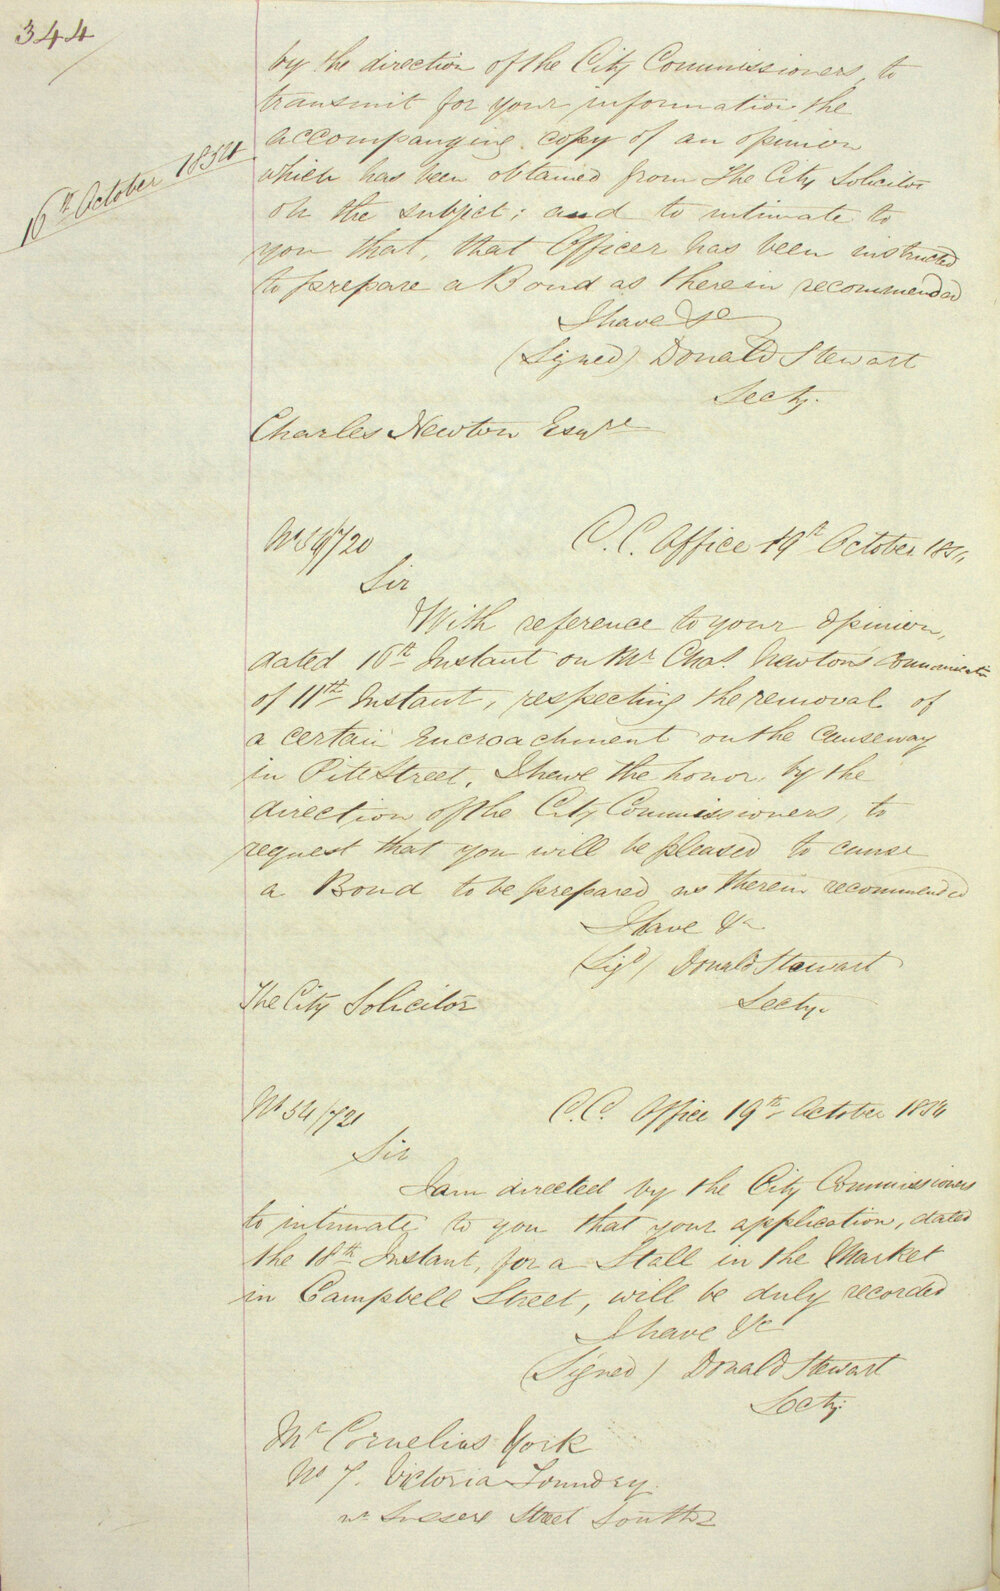 344
by the direction of the City Commissioners, to
transmit for your information the
accompanying copy of an opinion
16th October 1854
which has been obtained from the City Solicitor
on the subject; and to intimate to
you that, that Officer has been instructed
to prepare a Bond as therein recommended
I have &c
(Signed) Donald Stewart
Secty.
Charles Newton Esqre
No 54/720 C.C. Office 19th October 1854
Sir
With reference to your opinion,
dated 16th Instant on Mr Chas. Newton's Communication
of 11th Instant, respecting the removal of
a certain encroachment on the Causeway
in Pitt Street, I have the honor, by the
direction of the City Commissioners, to
request that you will be pleased to cause
a Bond to be prepared as therein recommended
I have &c
(Sigd) Donald Stewart
Secty.
The City Solicitor
No 54/721 C.C. Office 19th October 1854
Sir
I am directed by the City Commissioners
to intimate to you that your application, dated
the 18th Instant, for a Stall in the Market
in Campbell Street, will be duly recorded
I have &c
(Signed) Donald Stewart
Secty.
Mr Cornelius York
No 7. Victoria Foundry
Sussex Street South